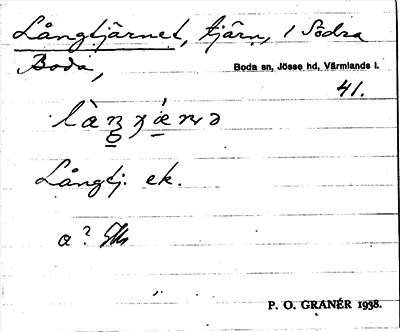 Långtjärnet, tjärn, i Södra
Boda,
Boda sn, Jösse hd, Värmlands l.
41.
Långtj. ek.
a?
P. O. GRANÉR 1938.